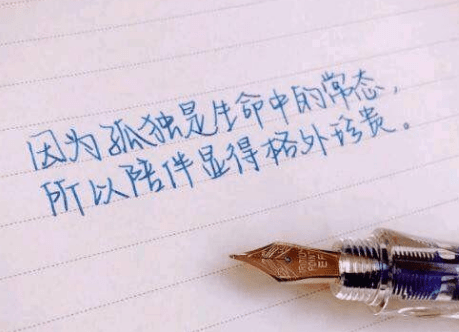 因为孤独是生命中的常态，
所以陪伴显得格外珍贵。
EF